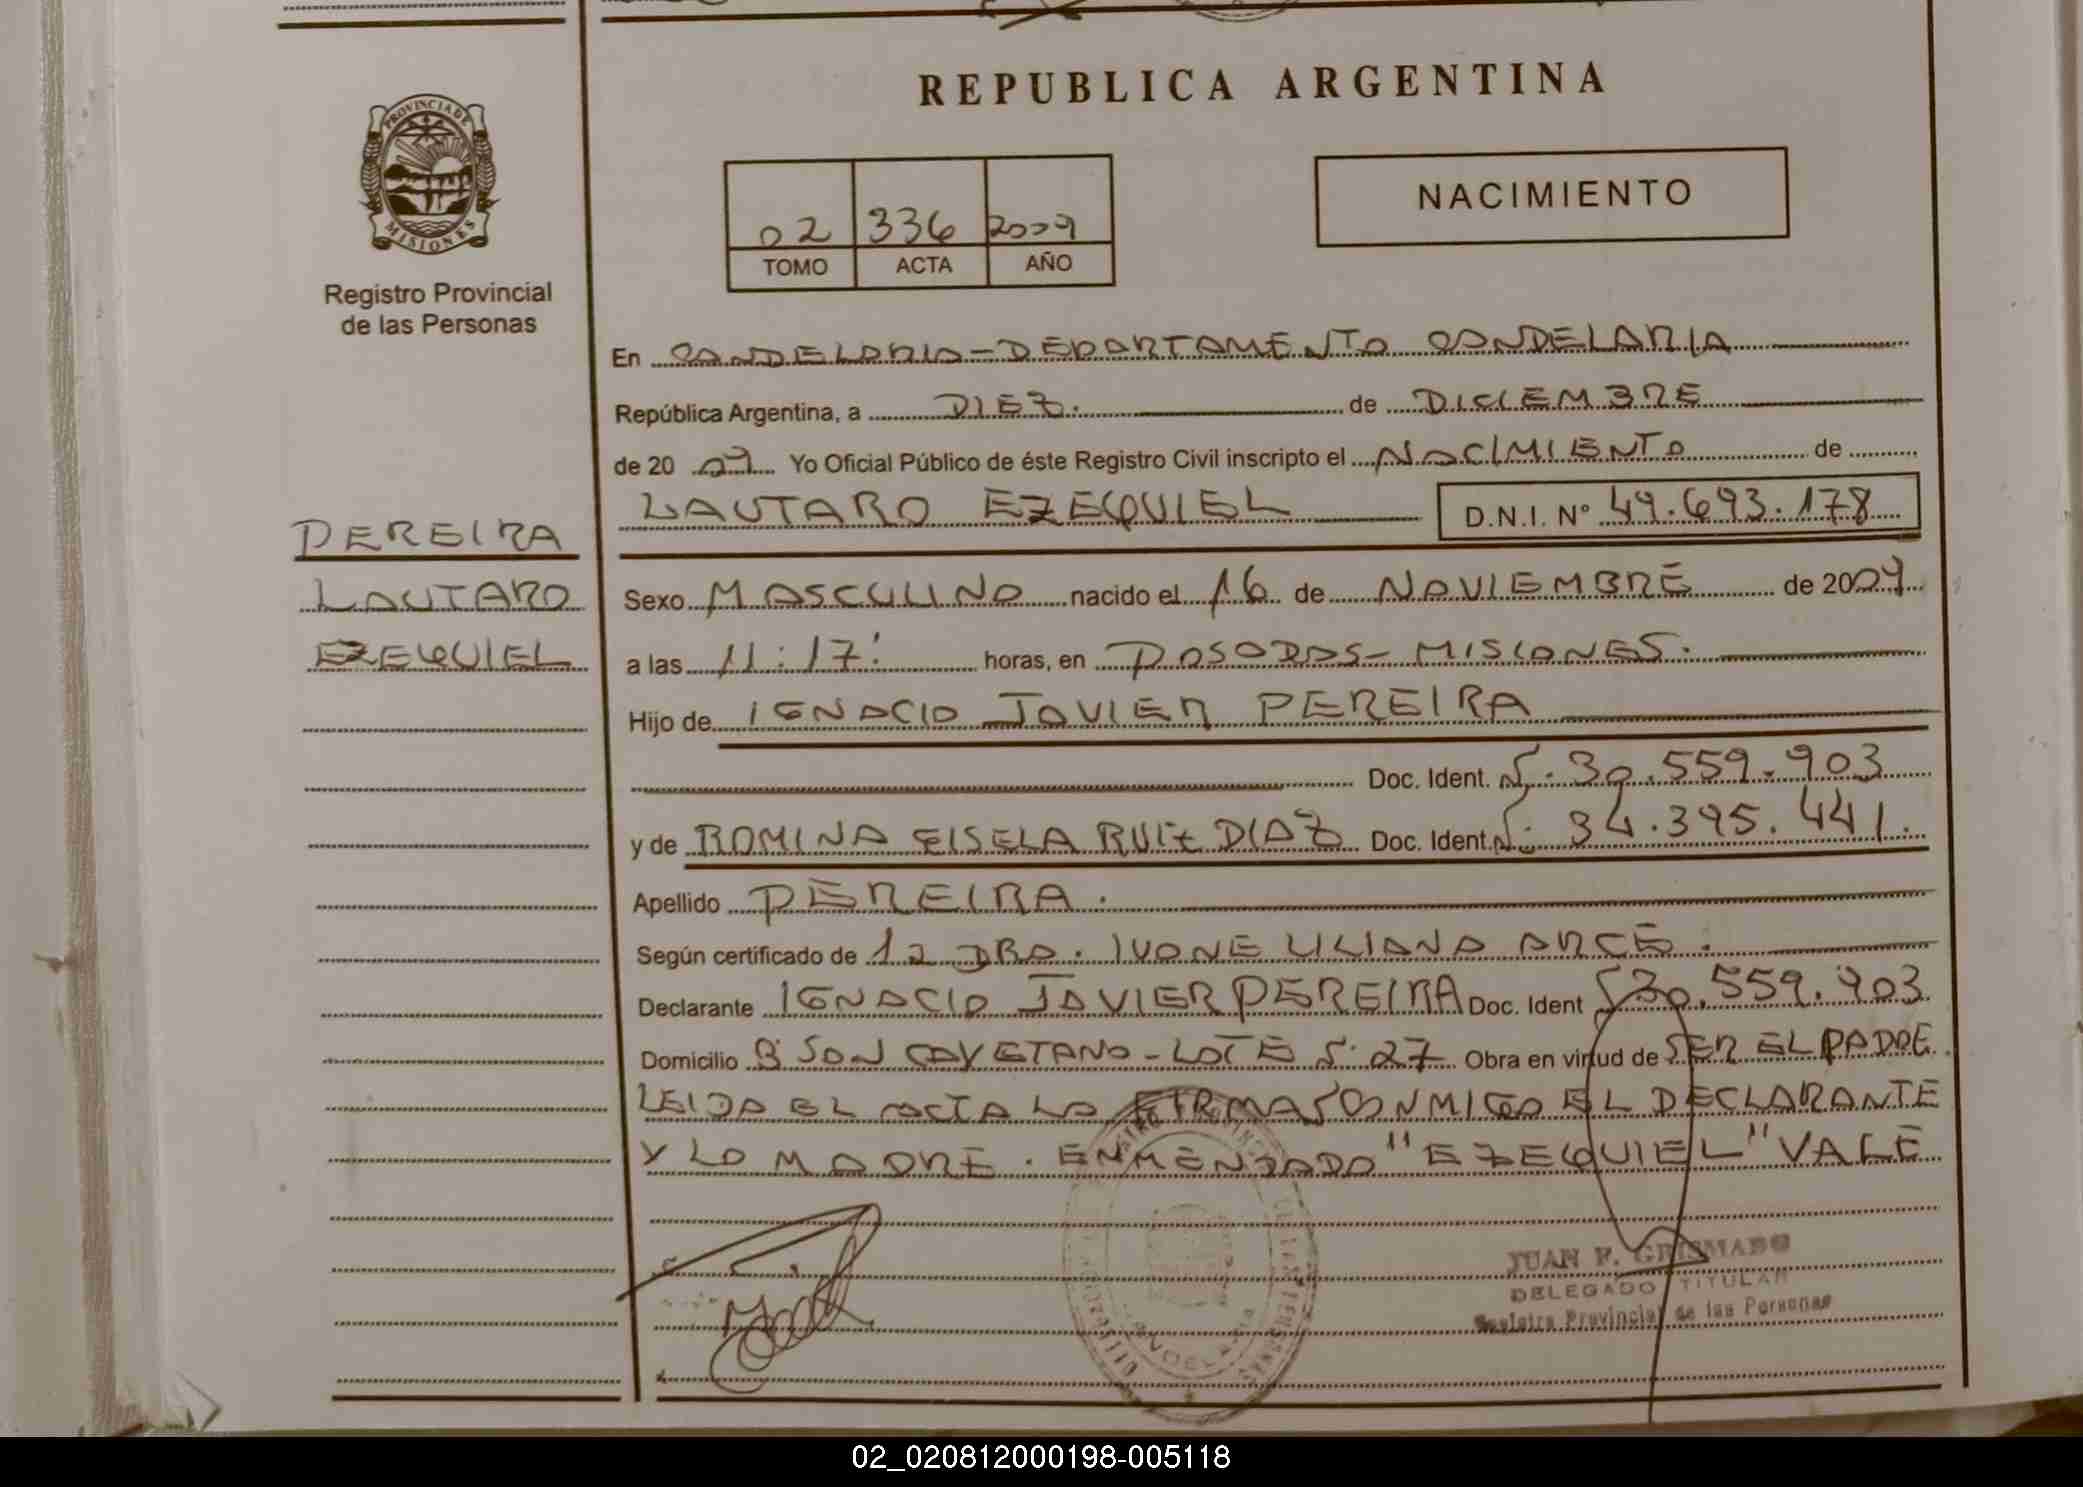 REPUBLICA ARGENTINA
PROVINCIA DE MISIONES
Registro Provincial
de las Personas
02 336 2009
TOMO ACTA AÑO
NACIMIENTO
En CANDELARIA - DEPARTAMENTO CANDELARIA
República Argentina, a DIEZ. de DICIEMBRE
de 20 09 Yo Oficial Público de éste Registro Civil inscripto el NACIMIENTO de
LAUTARO EZEQUIEL D.N.I. Nº 49.693.178
PEREIRA
LAUTARO
EZEQUIEL
Sexo MASCULINO nacido el 16 de NOVIEMBRE de 2009
a las 11:17' horas, en POSADAS - MISIONES.
Hijo de IGNACIO JAVIER PEREIRA
Doc. Ident. Nº 30.559.903
y de ROMINA GISELA RUIZ DIAZ Doc. Ident. Nº 34.395.441.
Apellido PEREIRA.
Según certificado de la DRA. IVONE LILIANA ARCE.
Declarante IGNACIO JAVIER PEREIRA Doc. Ident 30.559.903
Domicilio Bº SAN CAYETANO - LOTE Nº 27 Obra en virtud de SER EL PADRE.
LEIDA EL ACTA LA FIRMA CONMIGO EL DECLARANTE
Y LA MADRE. ENMENDADO "EZEQUIEL" VALE
JUAN F. GRISMADO
DELEGADO TITULAR
Registro Provincial de las Personas
CANDELARIA
02_020812000198-005118